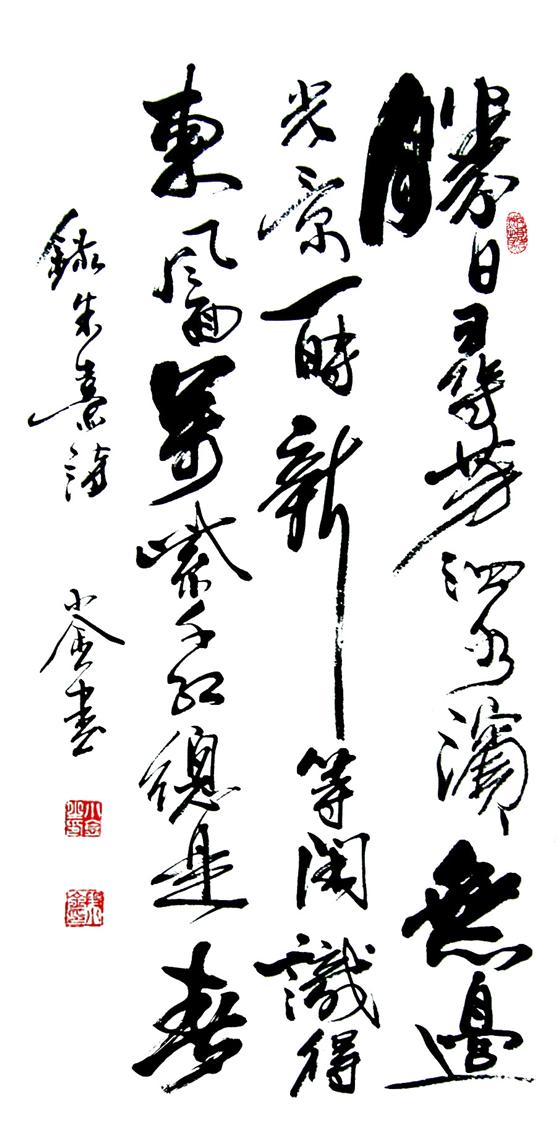 勝日尋芳泗水濱無邊
光景一時新等閑識得
東風面萬紫千紅總是春
錄朱熹詩 小金書